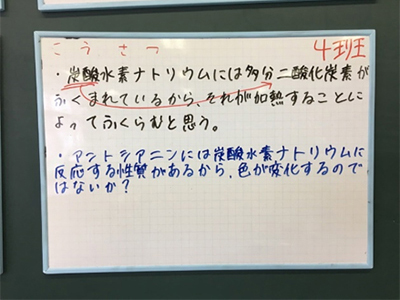 こうさつ
4班
・炭酸水素ナトリウムには多分二酸化炭素が
ふくまれているから、それが加熱することに
よってふくらむと思う。
・アントシアニンには炭酸水素ナトリウムに
反応する性質があるから、色が変化するので
はないか？